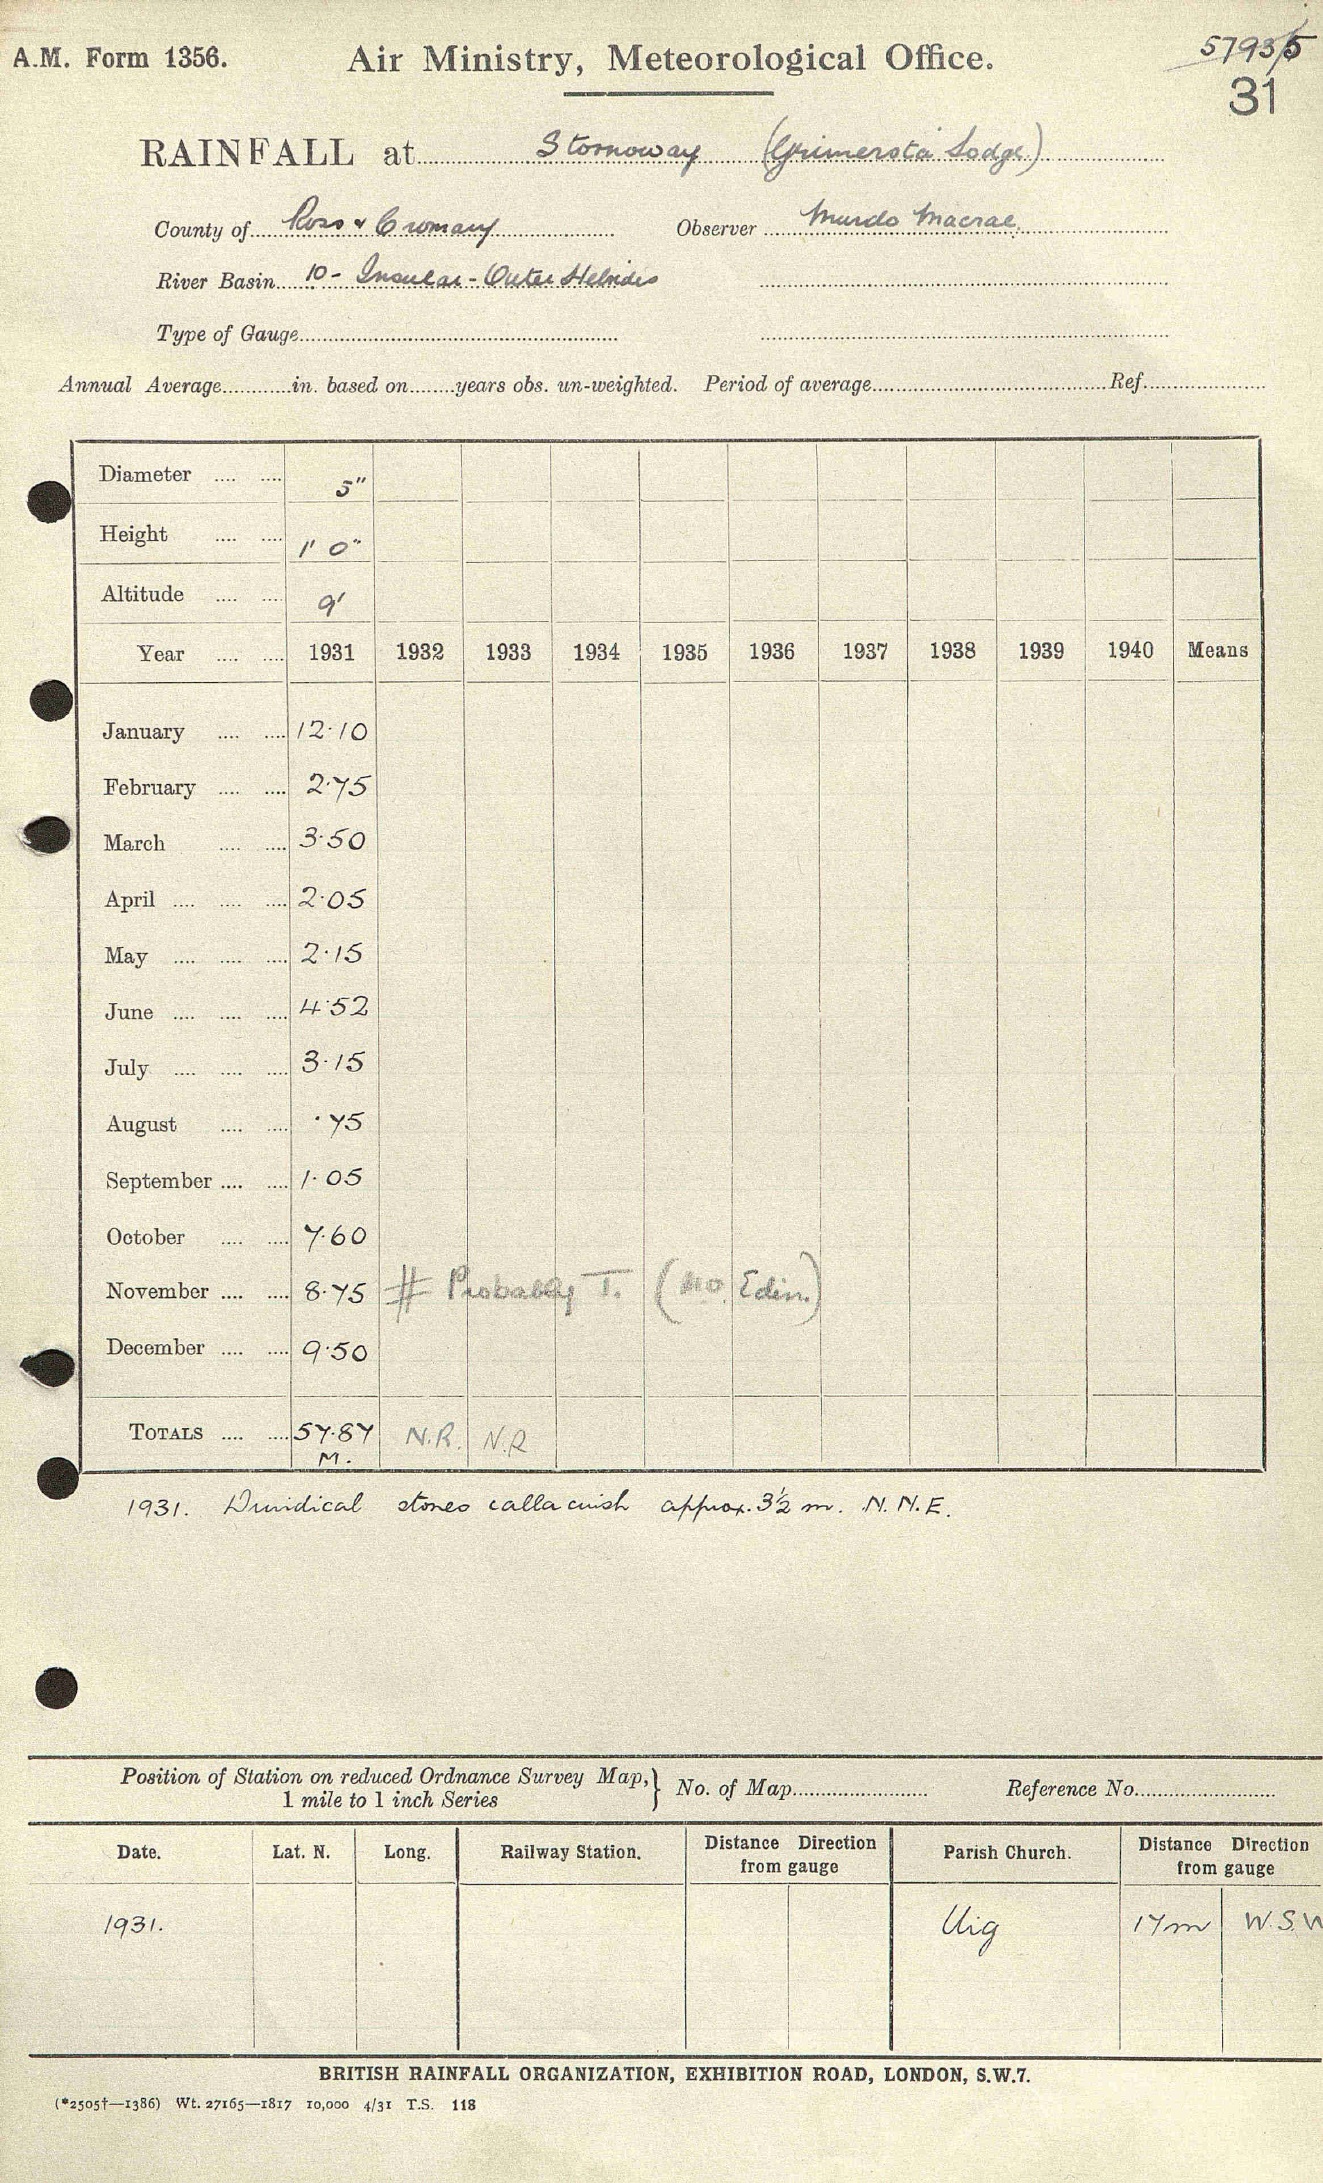 A.M. Form 1356. Air Ministry, Meteorological Office. 5793/5
31
RAINFALL at Stornoway (Grimersta Lodge)
County of Ross & Cromarty Observer Murdo Macrae.
River Basin 10 - Insular - Outer Hebrides
Type of Gauge
Annual Average in. based on years obs. un-weighted. Period of average Ref.
Diameter 5"
Height 1' 0"
Altitude 9'
Year 1931 1932 1933 1934 1935 1936 1937 1938 1939 1940 Means
January 12.10
February 2.75
March 3.50
April 2.05
May 2.15
June 4.52
July 3.15
August .75
September 1.05
October 7.60
November 8.75 # Probably T. (M.O. Edin.)
December 9.50
TOTALS 57.87 N.R. N.R
M.
1931. Druidical stones callacuish approx. 3½ m. N.N.E.
Position of Station on reduced Ordnance Survey Map, } No. of Map Reference No.
1 mile to 1 inch Series
Date. Lat. N. Long. Railway Station. Distance Direction from gauge Parish Church. Distance Direction from gauge
1931. Uig 17m W.S.W
BRITISH RAINFALL ORGANIZATION, EXHIBITION ROAD, LONDON, S.W.7.
(*2505†—1386) Wt. 27165—1817 10,000 4/31 T.S. 118